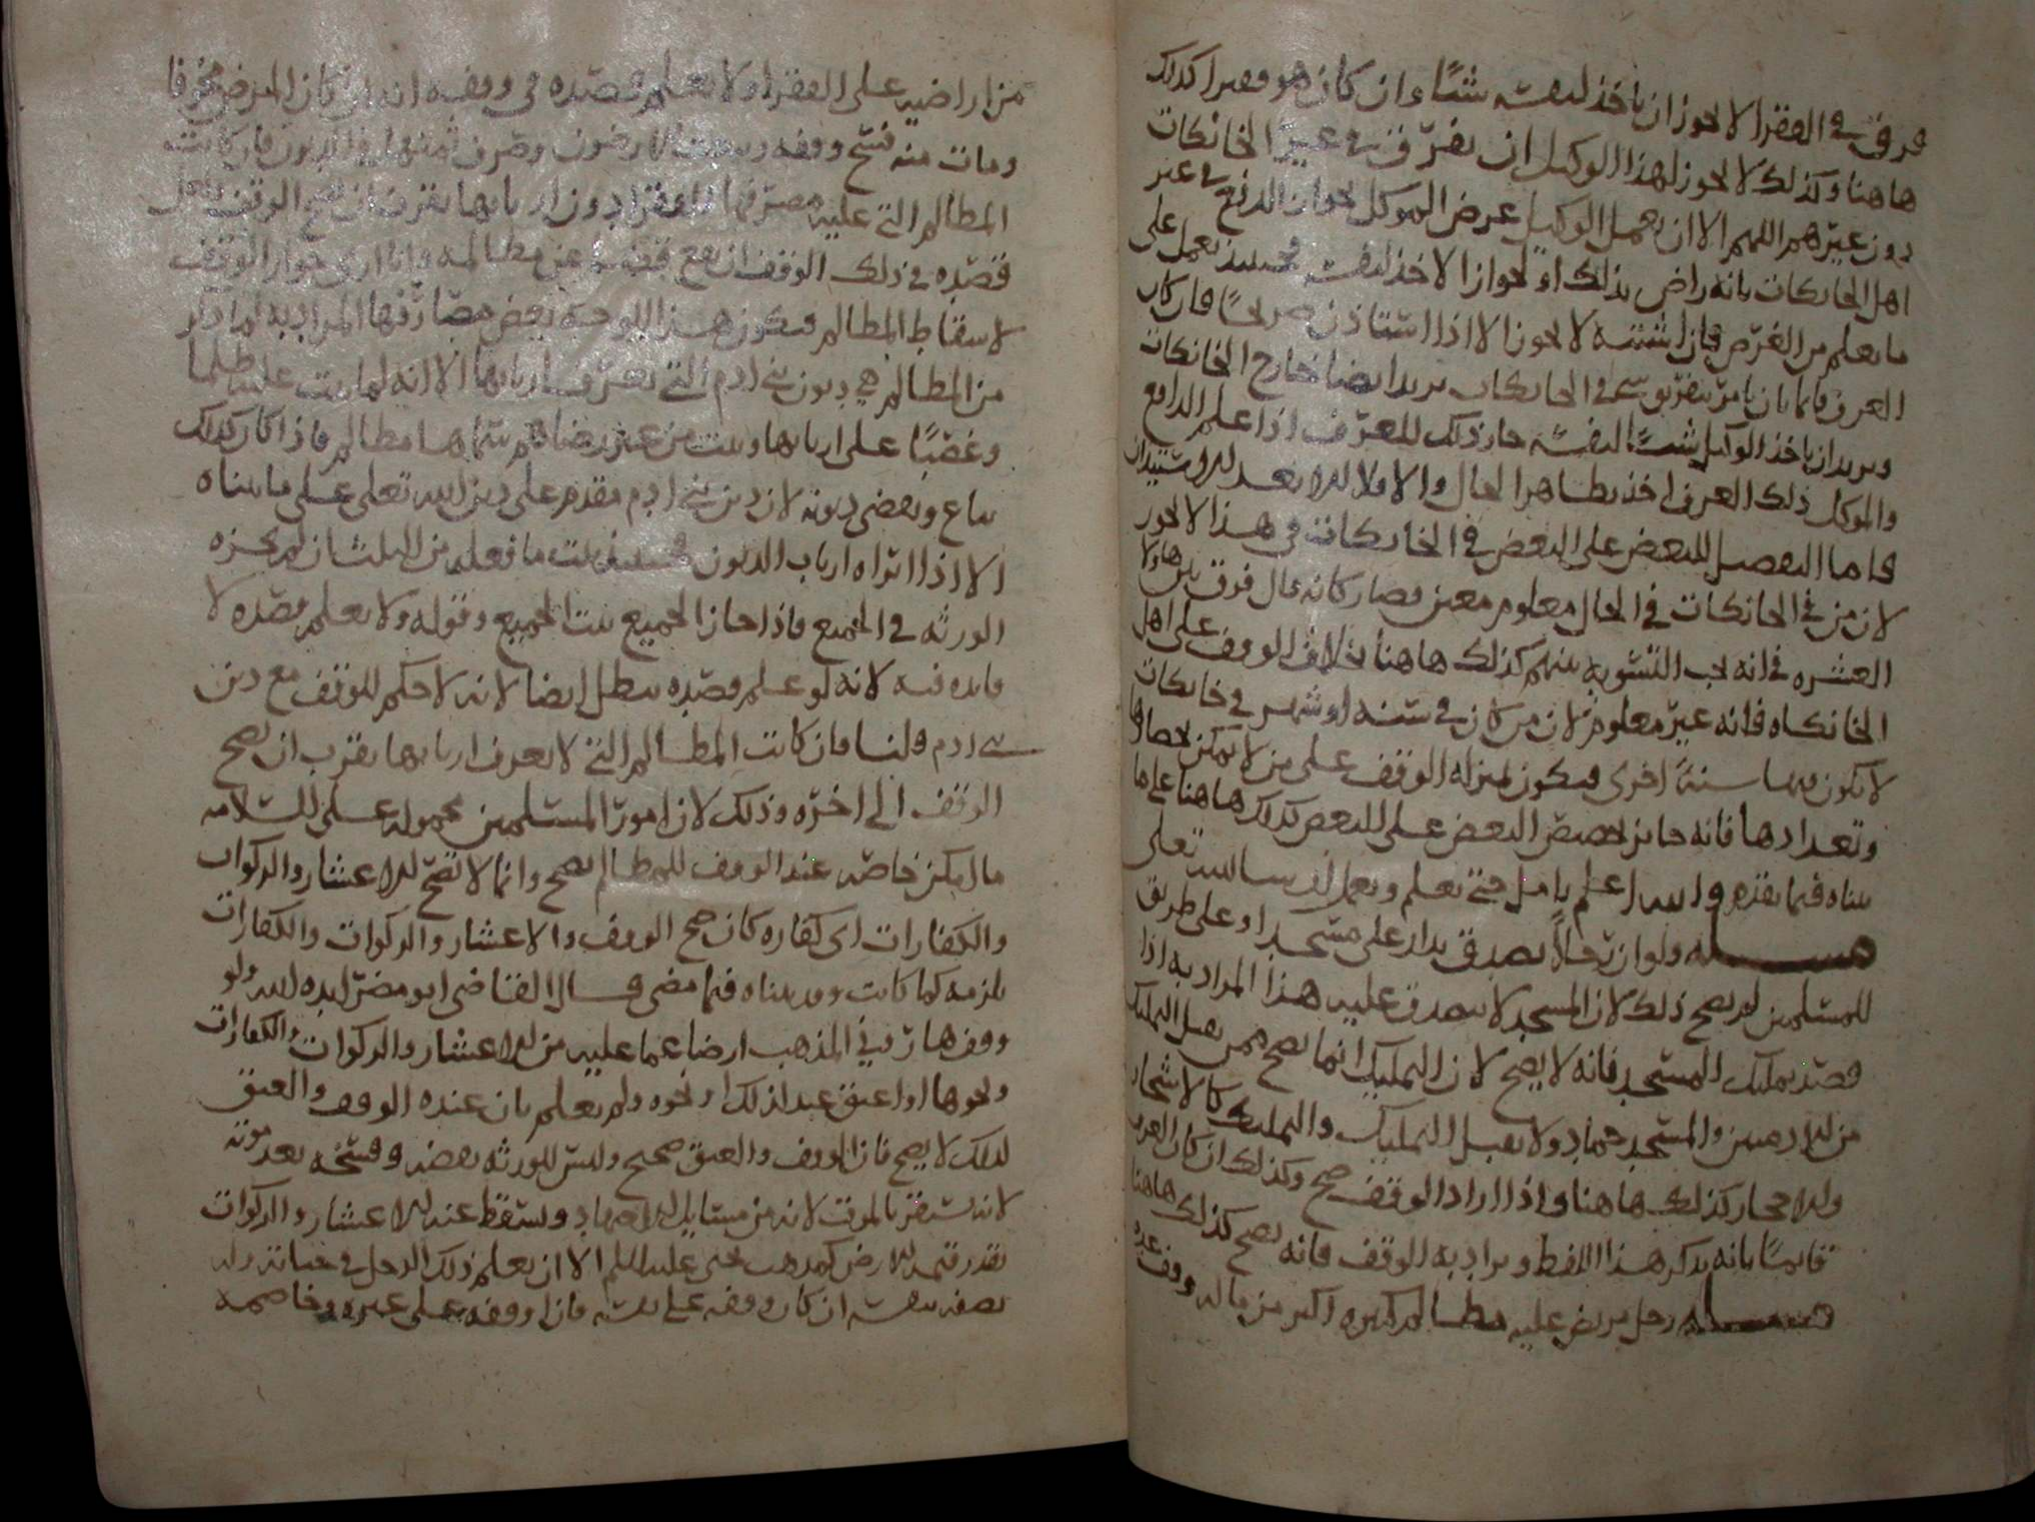 فرق في الفقرا لا يجوز ان ياخذ لنفسه شيئا وان كان هو فقيرا كذلك
هاهنا وكذلك لا يجوز لهذا الوكيل ان يفرق في غير الخانكات
دون غيرهم اللهم الا ان يعمل الوكيل غرض الموكل بجواز الدفع في غير
اهل الخانكات بانه راض بذلك او بجواز الاخذ لنفسه فحينئذ يعمل على
ما يعلم من الغرض فان اشتبه لا يجوز الا اذا استاذن صريحا فان كان
العرف فاما بان يامر بتفريق شي في الخانكات يريد ايضا خارج الخانكات
ويريد ان ياخذ الوكيل شيئا لنفسه جاز ذلك للعرف اذا علم الدافع
والموكل ذلك العرف اخذ بظاهر الحال والاولا الا بعد الاستيذان
فاما التفضيل للبعض على البعض في الخانكات في هذا لا يجوز
لان من في الخانكات في الحال معلوم معين فصار كانه قال فرق بين هاولا
العشره في انه يجب التسويه بينهم كذلك هاهنا بخلاف الوقف على اهل
الخانكاه فانه غير معلوم لان من كان في سنه او شهر في خانكات
لا يكون فيها سنة اخرى فيكون بمنزله الوقف على من لا يمكن احصاوها
وتعدادها فانه جايز تخصيص البعض على البعض كذلك هاهنا على ما
بيناه فيما تقدم والله اعلم تامل حتى تعلم وتعمل ان شا الله تعلى
مسله ولو ان رجلا تصدق بدار على مسجد او على طريق
للمسلمين لم يصح ذلك لان المسجد لا يتصدق عليه هذا المراد به اذا
قصد تمليك المسجد فانه لا يصح لان التمليك انما يصح ممن يقبل التمليك
من الادميين والمسجد جماد ولا يقبل التمليك والتملك كالاشجار
والاحجار كذلك هاهنا واذا اراد الوقف صح وكذلك ان كان العرف
قايما بانه يذكر هذا اللفظ ويراد به الوقف فانه يصح كذلك هاهنا
مسله رجل مريض عليه مظالم كثيره اكثر من ماله ووقف عده
من اراضيه على الفقرا ولا يعلم قصده في وقفه انه ان كان المرض مخوفا
ومات منه فسخ وقفه وبيعت الارضون وصرف ثمنها في الديون فان كانت
المظالم التي عليه مصرفها الفقرا دون اربابها يقرب ان يصح الوقف
قصده في ذلك الوقف ان يقع عن مظالمه وانا ارى جواز الوقف
لاسقاط المظالم فيكون هذا الوجه بعض مصارفها المراد به
من المظالم هي ديون بني ادم التي تعرف اربابها الا انه لما بيت عليه ظلما
وغصبا على اربابها وبيت من غير رضاهم سماها مظالم فاذا كان كذلك
يباع ويقضى ديونه لان دين بني ادم مقدم على دين الله تعلى على ما بيناه
الا اذا ابراه ارباب الديون فحينئذ يثبت ما فعله من الثلث ان لم يجزه
الورثه في الجميع فاذا اجازا لجميع يثبت الجميع وقوله ولا يعلم قصده لا
فايده فيه لانه لو علم قصده يبطل ايضا لانه لا حكم للوقف مع دين
بني ادم قلنا فان كانت المظالم التي لا يعرف اربابها يقرب ان يصح
الوقف الى اخره وذلك لان امور المسلمين محمولة على السلامه
ما لم يكن خاصه عند الوقف للمظالم يصح وانما لا تصح للاعشار والزكوات
والكفارات اي كفاره كان صح الوقف والاعشار والزكوات والكفارات
يلزمه كما كانت وقد بيناه فيما مضى قال القاضي ابو مضر ايده الله ولو
وقف هازوني المذهب ارضا عما عليه من الاعشار والزكوات والكفارات
ونحوها او اعتق عبدا لذلك او نحوه ولم يعلم بان عنده الوقف والعتق
لذلك لا يصح فان الوقف والعتق صحيح وليس للورثه نقضه وفسخه بعد موته
لانه استقر بالموت لانه من مسايل الاجتهاد ويسقط عنه الاعشار والزكوات
بقدر قيمه الارض كمذهب يحيى عليه السلم الا ان يعلم ذلك الرجل في حياته وله
نصفه بنفسه ان كان وقفه على نفسه فان اوقفه على غيره وخاصمه